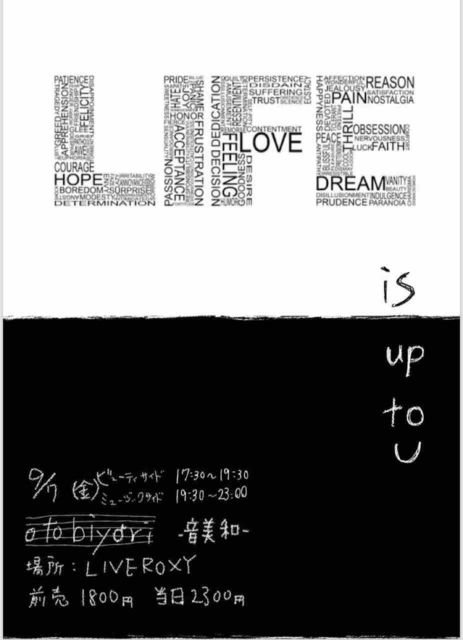 PATIENCE
APPREHENSION
FELICITY
COURAGE
HOPE
BOREDOM SURPRISE
MODESTY
DETERMINATION
PRIDE
HATE
JOY
SHAME
HONOR
PASSION
ACCEPTANCE
FRUSTRATION
DEDICATION
INDECISION
RESENTMENT
PERSISTENCE
DISDAIN
SUFFERING
TRUST
ECSTACY
CONTENTMENT
LOVE
FEELING
GOODNESS
DESIRE
HUMOR
AFFECTION
JEALOUSY
REASON
SATISFACTION
PAIN NOSTALGIA
HAPPYNESS
THRILL
OBSESSION
PEACE
NERVOUSNESS
LUCK FAITH
DREAM VANITY
BEAUTY
DISILLUSIONMENT INDULGENCE
PRUDENCE PARANOIA
is
up
to
U
9/17 (金) ビューティサイド 17:30~19:30
ミュージックサイド 19:30~23:00
otobiyori -音美和-
場所: LIVEROXY
前売 1800円 当日2300円